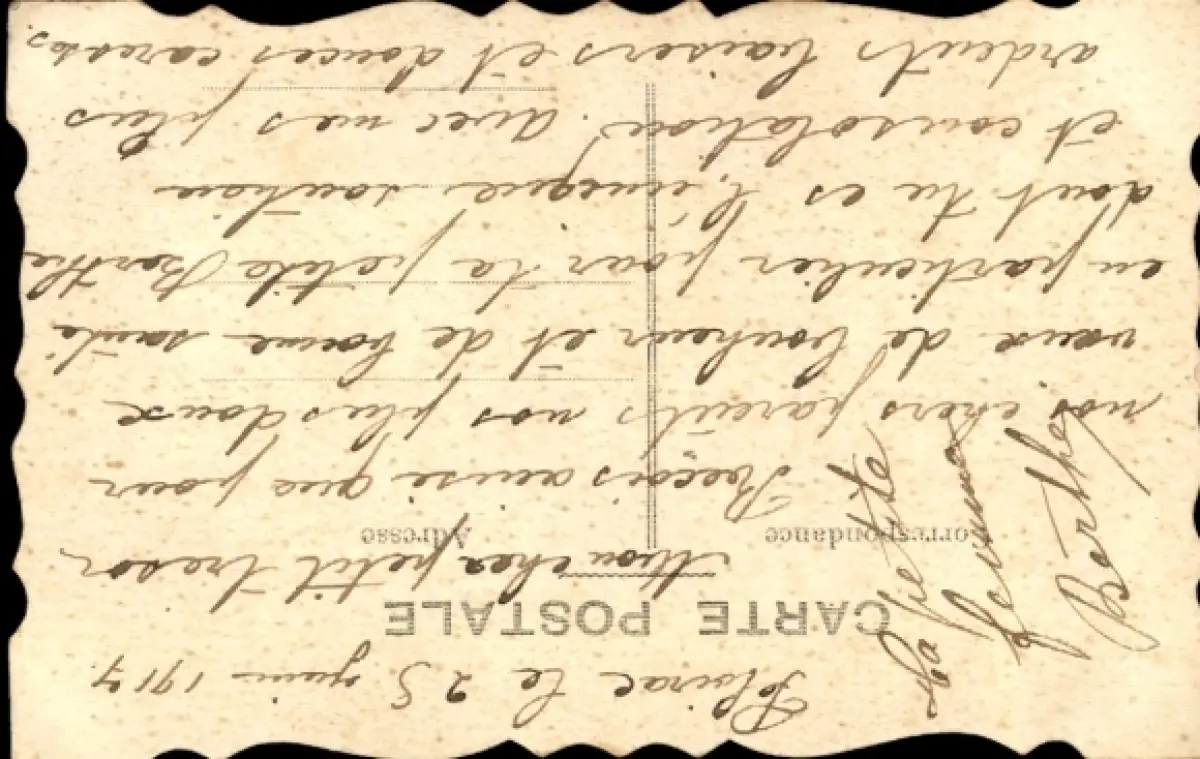 Floirac le 25 juin 1917
CARTE POSTALE
Mon cher petit tresor
Correspondance
Adresse
Reçois ainsi que pour
nos chers parents nos plus doux
vœux de bonheur et de bonne santé
en particulier pour ta petite Berthe
dont tu es l'unique soutien
et consolation. avec mes plus
ardents baisers et douces caresses.
Ta petite
femme
Berthe